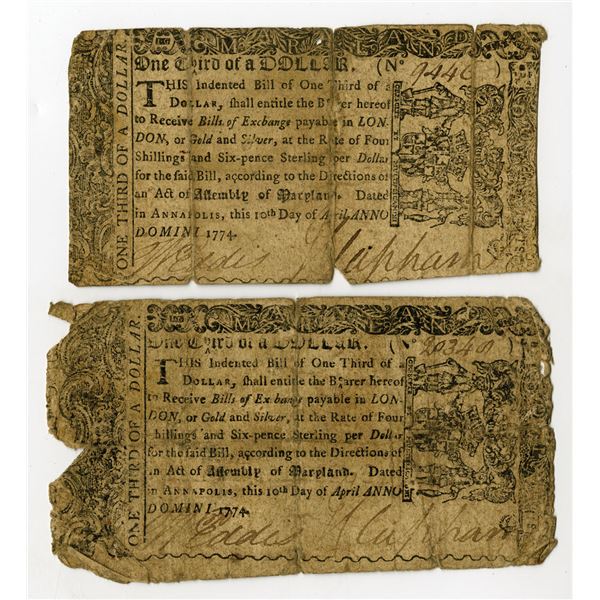 MARYLAND
One Third of a DOLLAR. (No 9446
THIS Indented Bill of One Third of a
DOLLAR, shall entitle the Bearer hereof
to Receive Bills of Exchange payable in LON-
DON, or Gold and Silver, at the Rate of Four
Shillings and Six-pence Sterling per Dollar
for the said Bill, according to the Directions of
an Act of Assembly of Maryland. Dated
in ANNAPOLIS, this 10th Day of April ANNO
DOMINI 1774.
W Eddis J Clapham
ONE THIRD OF A DOLLAR
MARYLAN
One Third of a DOLLAR. (No
THIS Indented Bill of One Third of a
DOLLAR, shall entitle the Bearer hereof
to Receive Bills of Exchange payable in LON-
DON, or Gold and Silver, at the Rate of Four
Shillings and Six-pence Sterling per Dollar
for the said Bill, according to the Directions of
an Act of Assembly of Maryland. Dated
in ANNAPOLIS, this 10th Day of April ANNO
DOMINI 1774.
W Eddis J Clapham
ONE THIRD OF A DOLLAR